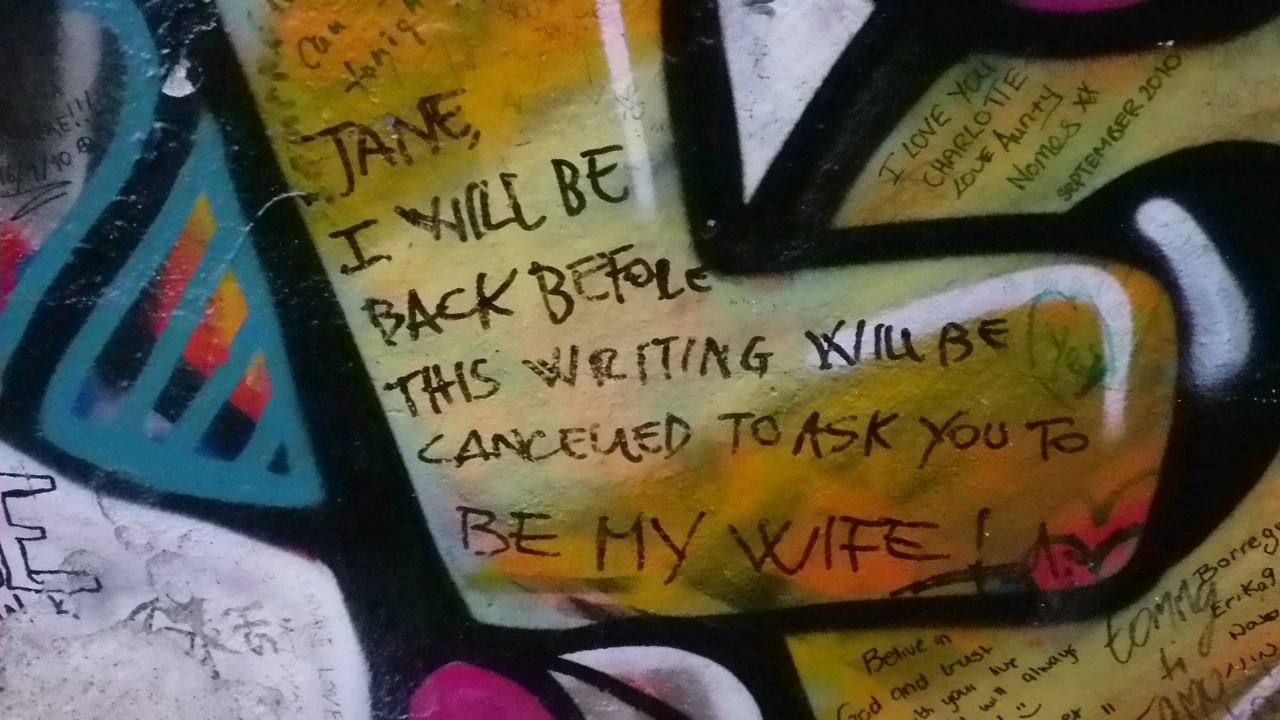 Can
JANE,
I WILL BE
BACK BEFORE
THIS WRITING WILL BE
CANCELLED TO ASK YOU TO
BE MY WIFE!
Yes
I LOVE YOU
CHARLOTTE
LOVE AUNTY
Nomes xx
SEPTEMBER 2010
E
Belive in
God and trust
with your live
will always
Borreg
Erika